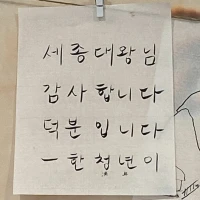 세종대왕님
감사합니다
덕분입니다
-한청년이